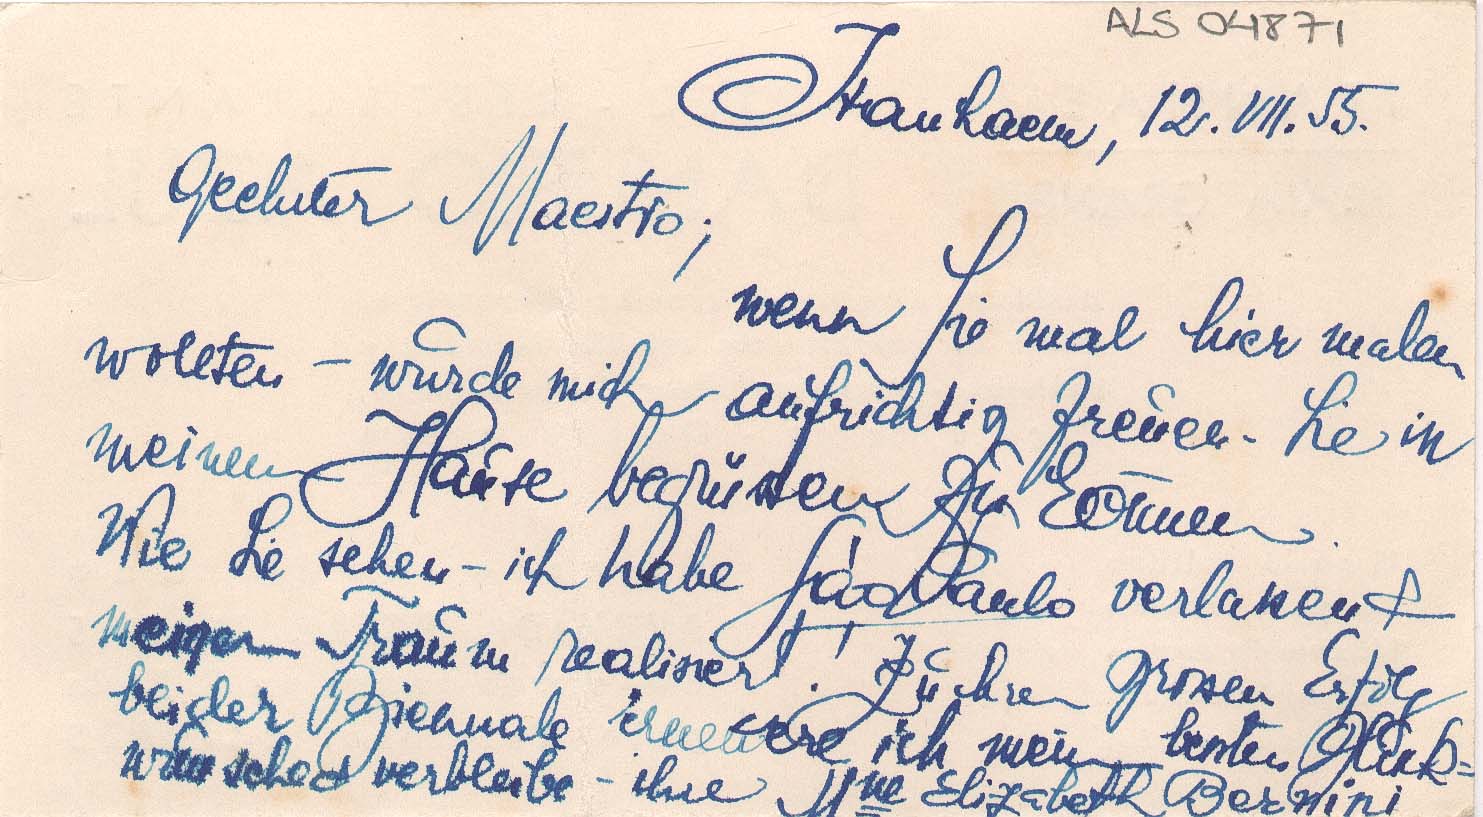 ALS 04871
Itanhaem, 12. VII. 55.
Geehrter Maestro;
wenn Sie mal hier malen
wollten – würde mich aufrichtig freuen – Sie in
meinem Hause begrüssen zu können.
Wie Sie sehen – ich habe São Paulo verlassen &
meinen Traum realisiert! Zu ihren grossen Erfolg
bei der Biennale erneuere ich meine besten Glück=
wünsche & verbleibe – ihre Mme Elizabeth Bernini